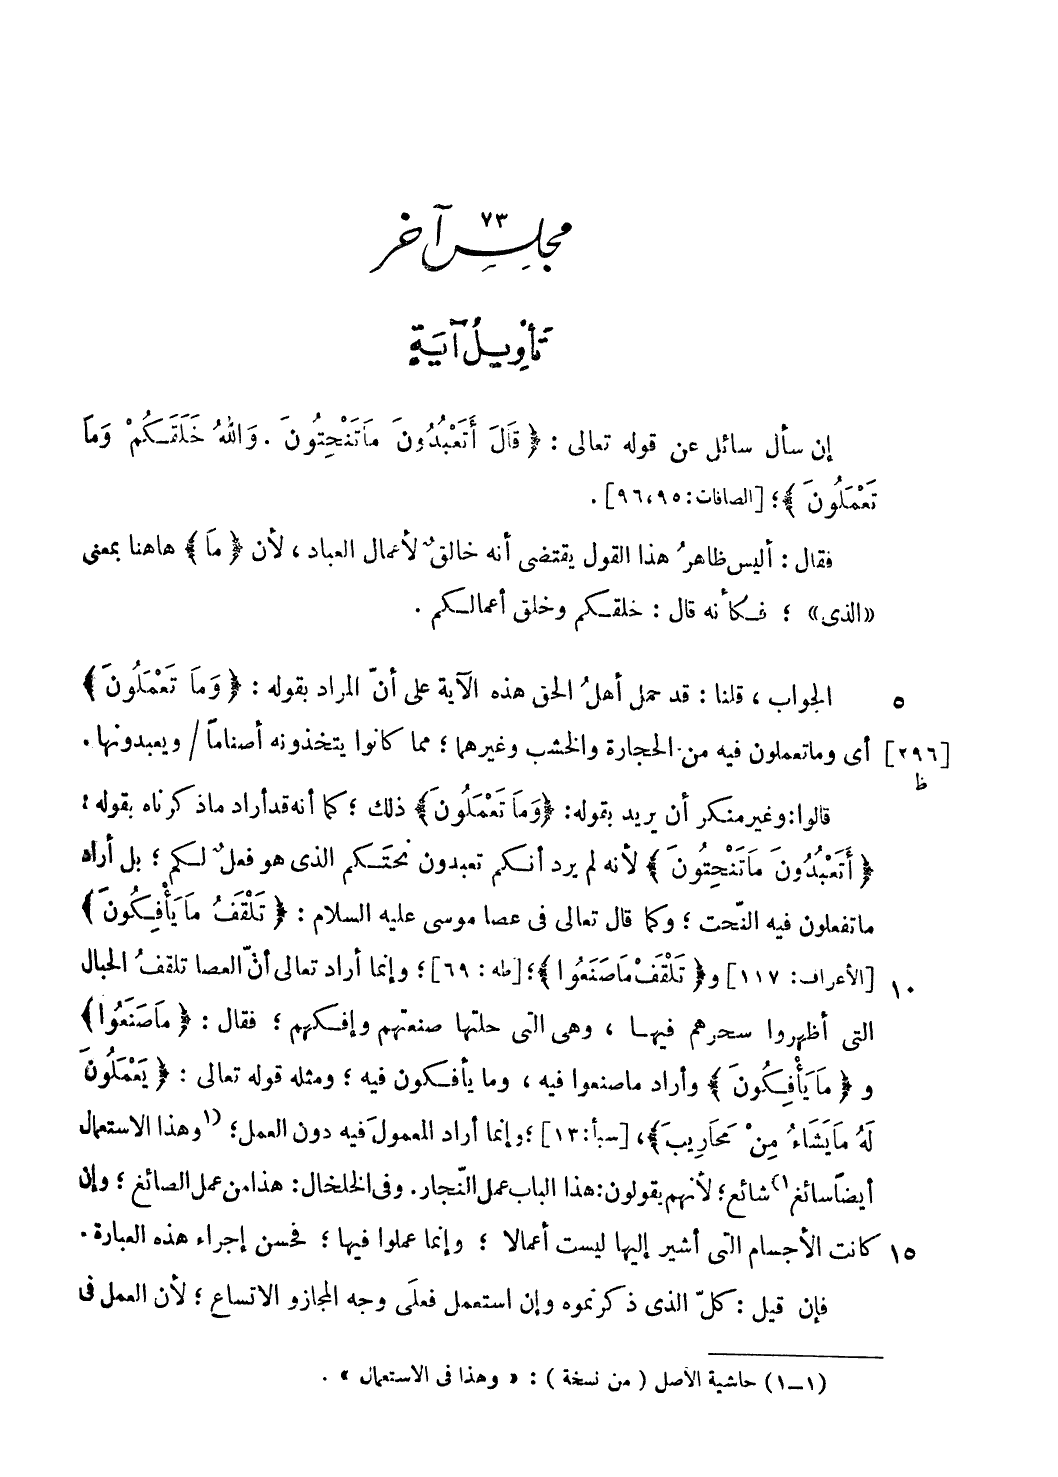 ٧٣
مجلس آخر
تَأْوِيلُ آيَةٍ
إن سأل سائل عن قوله تعالى : ﴿ قَالَ أَتَعْبُدُونَ مَاتَنْحِتُونَ . وَاللهُ خَلَقَكُمْ وَمَا
تَعْمَلُونَ ﴾؛ [الصافات: ٩٥، ٩٦] .
فقال : أليس ظاهرُ هذا القول يقتضى أنه خالقٌ لأعمال العباد ، لأن ﴿ مَا ﴾ هاهنا بمعنى
«الذى» ؛ فكأنه قال : خلقكم وخلق أعمالكم .
الجواب ، قلنا : قد حمل أهلُ الحق هذه الآية على أنّ المراد بقوله : ﴿ وَمَا تَعْمَلُونَ ﴾ ٥
[٢٩٦] أى وماتعملون فيه من الحجارة والخشب وغيرهما ؛ مما كانوا يتخذونه أصناماً / ويعبدونها .
ظ
قالوا: وغير منكر أن يريد بقوله: ﴿وَمَا تَعْمَلُونَ﴾ ذلك ؛ كما أنه قد أراد ماذكرناه بقوله :
﴿ أَتَعْبُدُونَ مَاتَنْحِتُونَ ﴾ لأنه لم يرد أنكم تعبدون نحتَكم الذى هو فعلٌ لكم ؛ بل أراد
ماتفعلون فيه النّحت ؛ وكما قال تعالى فى عصا موسى عليه السلام : ﴿ تَلْقَفُ مَا يَأْفِكُونَ ﴾
[الأعراف: ١١٧] و﴿ تَلْقَفْ مَاصَنَعُوا ﴾؛ [طه : ٦٩]؛ وإنما أراد تعالى أنّ العصا تلقفُ الحبال ١٠
التى أظهروا سحرهم فيها ، وهى التى حلتها صنعتهم وإفكهم ؛ فقال : ﴿ مَاصَنَعُوا ﴾
و ﴿ مَايَأْفِكُونَ ﴾ وأراد ماصنعوا فيه ، وما يأفكون فيه ؛ ومثله قوله تعالى : ﴿ يَعْمَلُونَ
لَهُ مَايَشَاءُ مِنْ مَحَارِيبَ﴾، [سبأ: ١٣]؛ وإنما أراد المعمولَ فيه دون العمل؛ (١وهذا الاستعمال
أيضاً سائغ١) شائع؛ لأنهم يقولون: هذا الباب عمل النّجار. وفى الخلخال: هذا من عمل الصائغ ؛ وإن
كانت الأجسام التى أشير إليها ليست أعمالا ؛ وإنما عملوا فيها ؛ فحسن إجراء هذه العبارة . ١٥
فإن قيل : كلّ الذى ذكرتموه وإن استعمل فعلَى وجه المجاز و الاتساع ؛ لأن العمل فى
(١-١) حاشية الأصل ( من نسخة ) : « وهذا فى الاستعمال » .